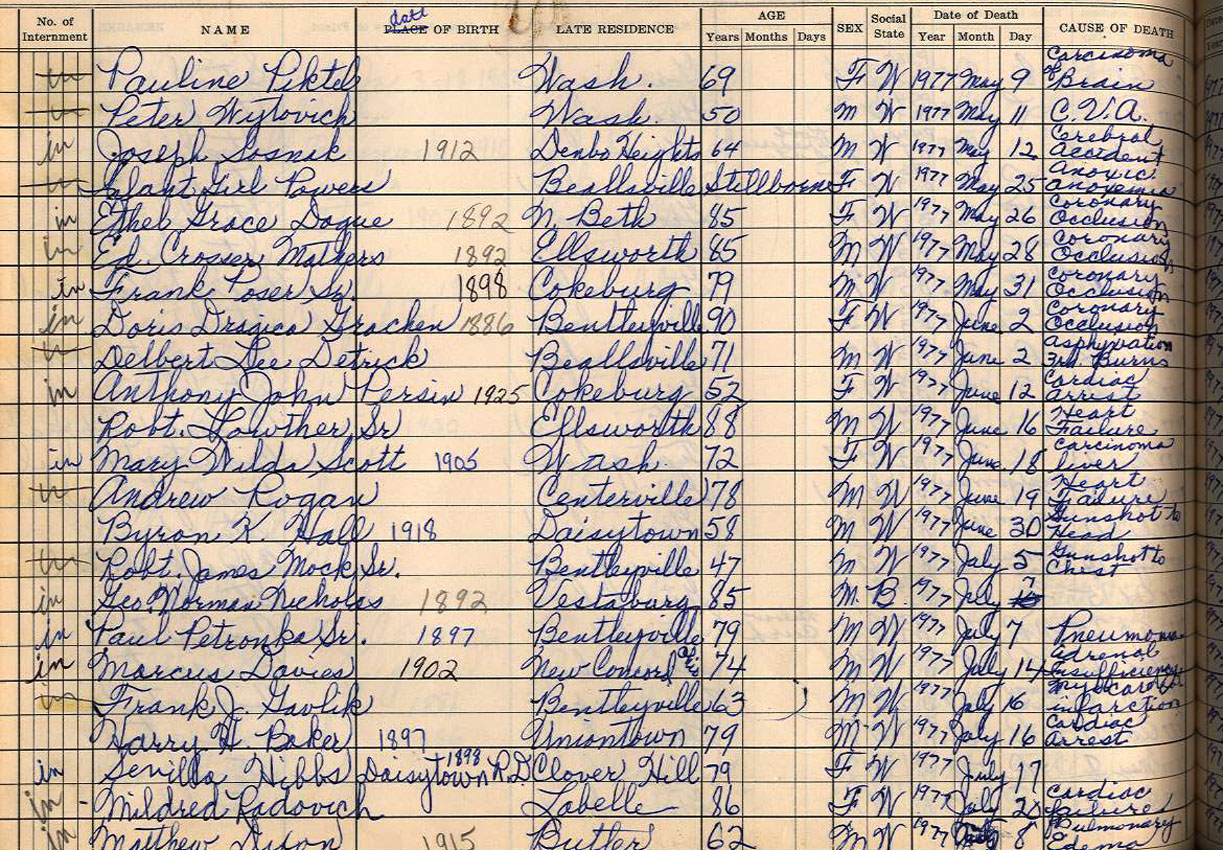 No. of Internment NAME date PLACE OF BIRTH LATE RESIDENCE AGE Years Months Days SEX Social State Date of Death Year Month Day CAUSE OF DEATH
in Pauline Piktel Wash. 69 F W 1977 May 9 Carcinoma of Brain
in Peter Wytovich Wash. 50 M W 1977 May 11 C.V.A.
in Joseph Sosnak 1912 Denbo Heights 64 M W 1977 May 12 Cerebral Accident
in Infant Girl Powers Beallsville Stillborn F W 1977 May 25 Anoxic Anoxemia
in Ethel Grace Dague 1892 N. Beth 85 F W 1977 May 26 Coronary Occlusion
in Ed. Crosser Mathers 1892 Ellsworth 85 M W 1977 May 28 Coronary Occlusion
in Frank Toser Sr. 1898 Cokeburg 79 M W 1977 May 31 Coronary Occlusion
in Doris Dragica Grachen 1886 Bentleyville 90 F W 1977 June 2 Coronary Occlusion
in Delbert Lee Detrick Beallsville 71 M W 1977 June 2 Asphyxation 3rd. Burns
in Anthony John Persin 1925 Cokeburg 52 F W 1977 June 12 Cardiac arrest
Robt. Lowther Sr Ellsworth 88 M W 1977 June 16 Heart Failure
in Mary Wilda Scott 1905 Wash. 72 F W 1977 June 18 Carcinoma liver
in Andrew Rogan Centerville 78 M W 1977 June 19 Heart Failure
Byron K. Hall 1918 Daisytown 58 M W 1977 June 30 Gunshot to Head
in Robt. James Mock Sr. Bentleyville 47 M W 1977 July 5 Gunshot to Chest
in Geo. Norman Nicholas 1892 Vestaburg 85 M B. 1977 July 7
in Paul Petronka Sr. 1897 Bentleyville 79 M W 1977 July 7 Pneumonia
in Marcus Davies 1902 New Concord Ohio 74 M W 1977 July 14 adrenal Insufficiency
in Frank J. Gavlik Bentleyville 63 M W 1977 July 16 Myocardial infarction
Harry H. Baker 1897 Uniontown 79 M W 1977 July 16 Cardiac arrest
in Sevilla Hibbs Daisytown R.D 1898 Clover Hill 79 F W 1977 July 17
in Mildred Radovich Labelle 86 F W 1977 July 20 Cardiac failure
in Matthew Dixon 1915 Butler 62 M W 1977 8 Pulmonary Edema